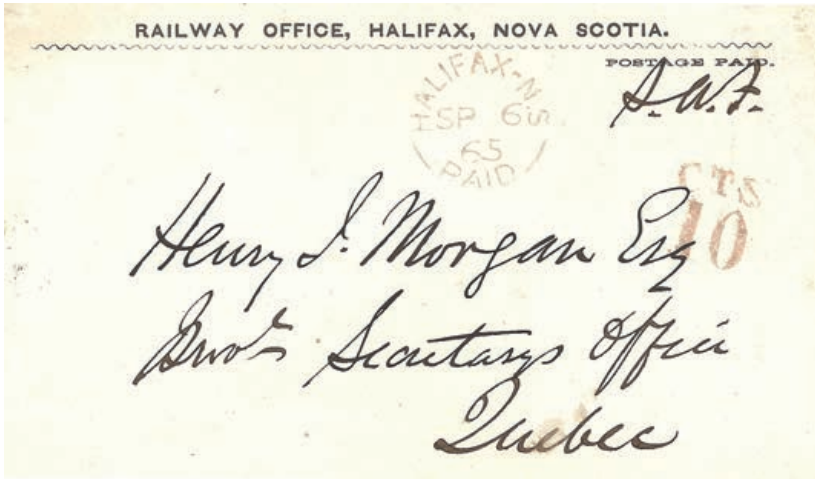 RAILWAY OFFICE, HALIFAX, NOVA SCOTIA.
POSTAGE PAID.
HALIFAX-N
SP 6
65
PAID
CTS
10
Henry J. Morgan Esq
Secretarys Office
Quebec